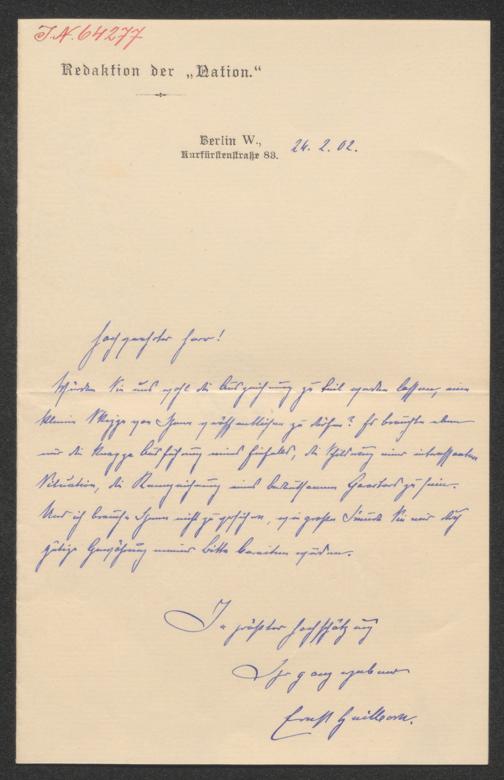 I.N. 64277
Redaktion der „Nation.“
Berlin W.,
Kurfürstenstraße 83.
24. 2. 02.
Hochgeehrter Herr!
Würden Sie uns wohl die Auszeichnung zu teil werden lassen, eine
kleine Skizze von Ihnen veröffentlichen zu dürfen? Es brauchte eben
nur die knappe Ausführung eines Einfalls, die Schilderung einer interessanten
Situation, die Kennzeichnung eines bedeutsamen zu sein.
Und ich brauche Ihnen nicht zu gestehen, wie große Freude Sie mir durch
gütige Gewährung meiner Bitte bereiten würden.
In größter Hochschätzung
Ihr ganz ergebener
Ernst Heilborn.